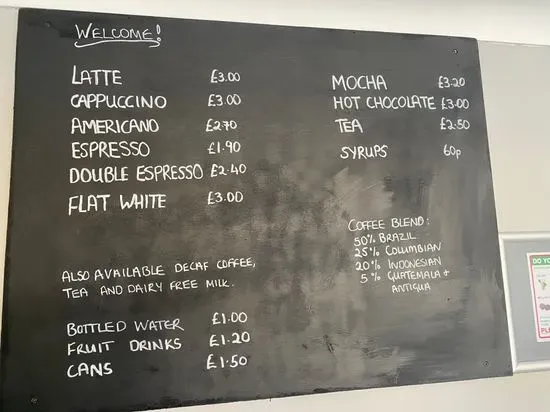 WELCOME!
LATTE £3.00
CAPPUCCINO £3.00
AMERICANO £2.70
ESPRESSO £1.90
DOUBLE ESPRESSO £2.40
FLAT WHITE £3.00
MOCHA £3.20
HOT CHOCOLATE £3.00
TEA £2.50
SYRUPS 60p
COFFEE BLEND:
50% BRAZIL
25% COLUMBIAN
20% INDONESIAN
5% GUATEMALA +
ANTIGUA
ALSO AVAILABLE DECAF COFFEE,
TEA AND DAIRY FREE MILK.
BOTTLED WATER £1.00
FRUIT DRINKS £1.20
CANS £1.50
DO YO